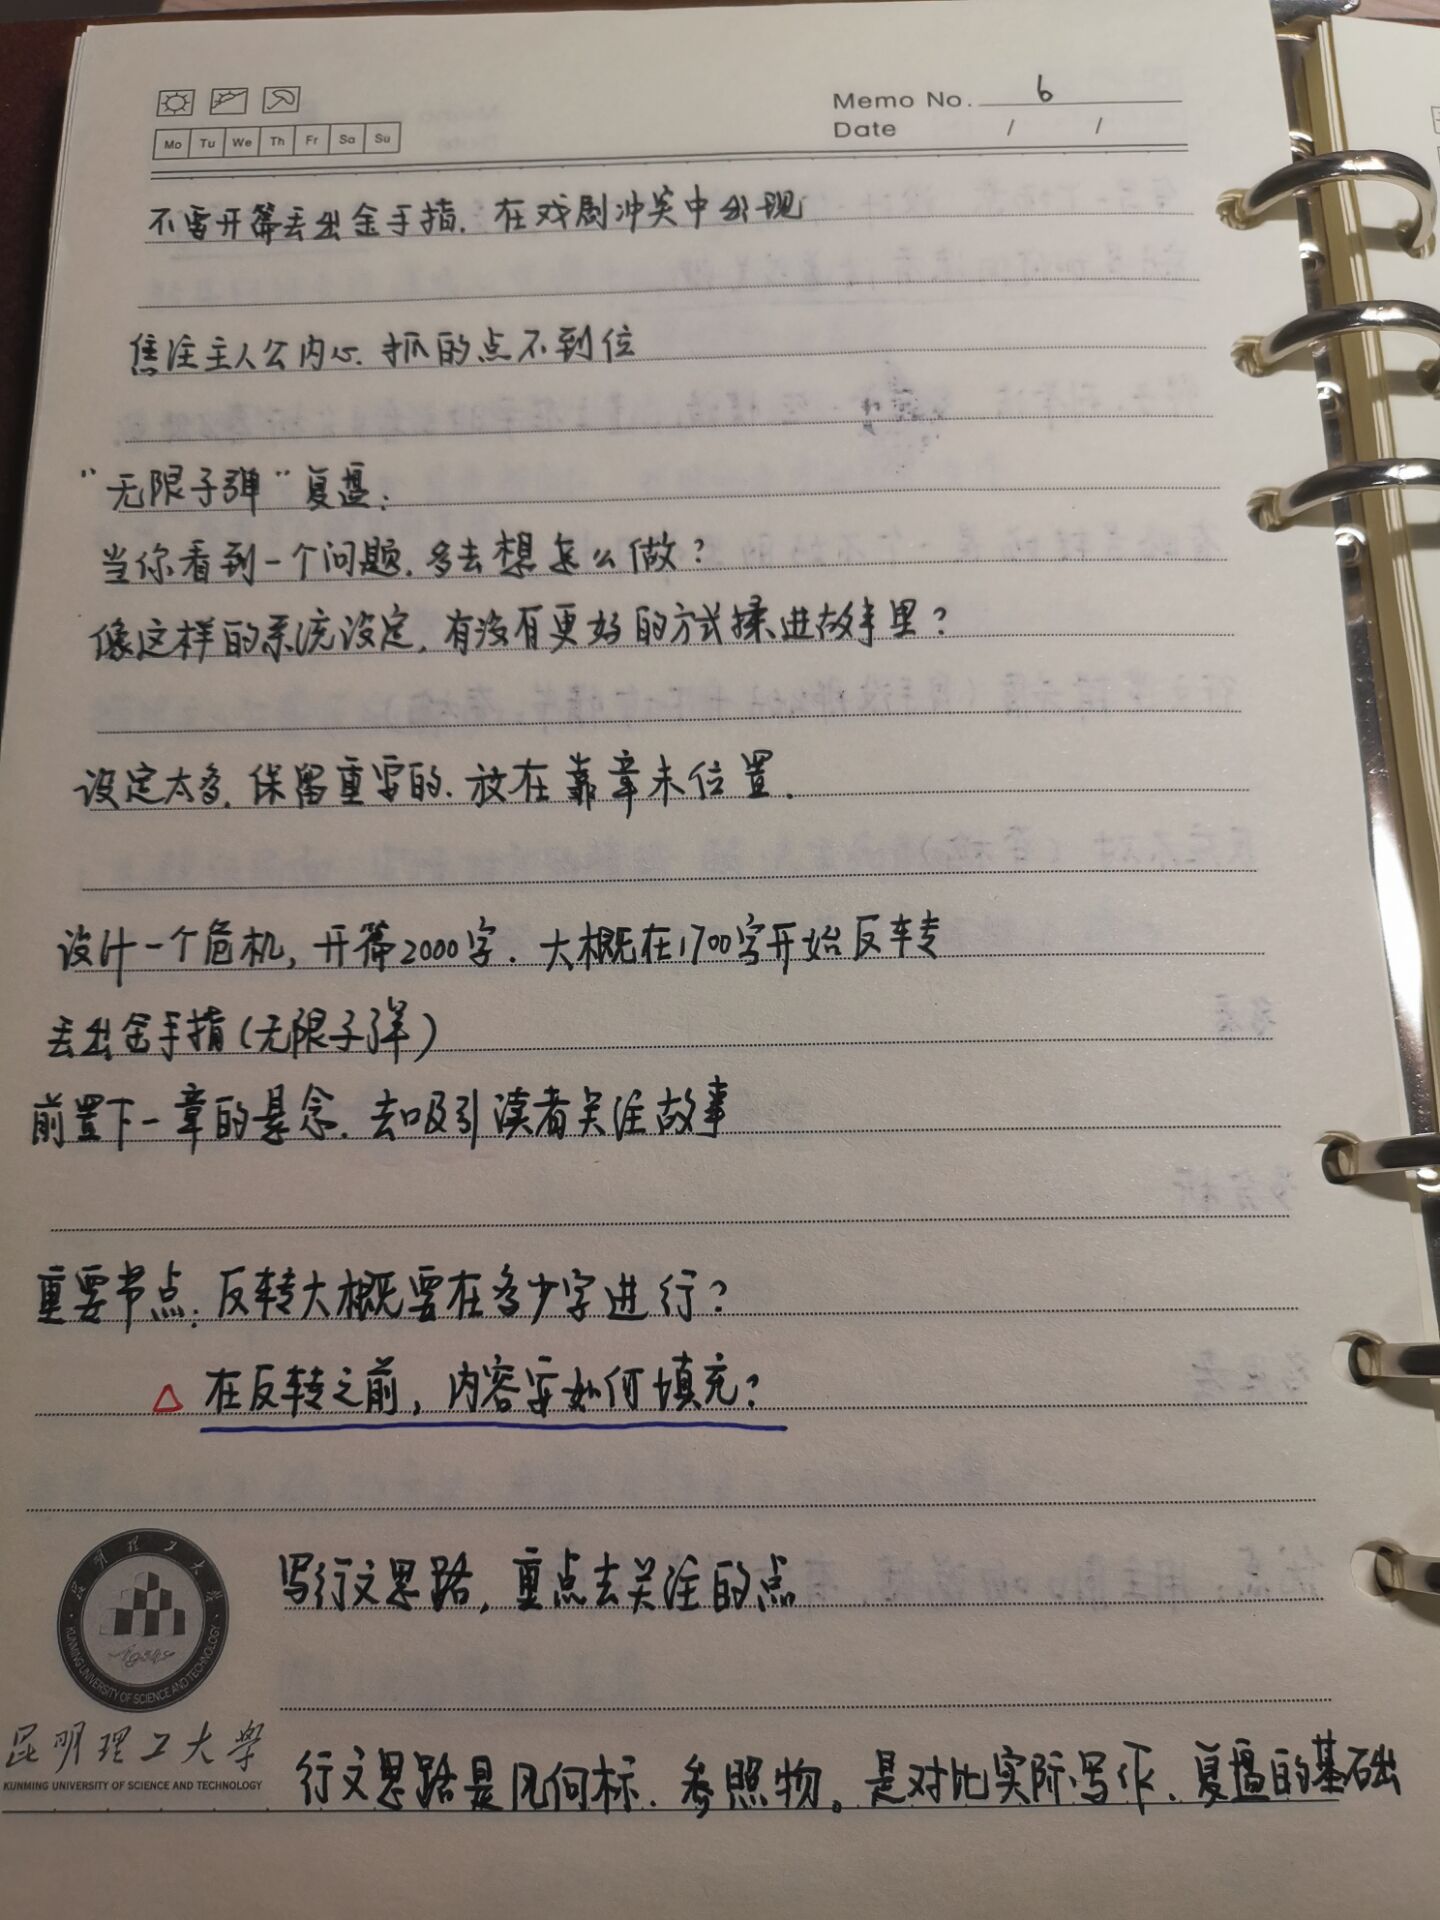 Memo No. 6
Mo Tu We Th Fr Sa Su
Date / /
不需开篇丢出金手指，在戏剧冲突中出现
焦注主人公内心，抓的点不到位
“无限子弹”复盘：
当你看到一个问题，多去想怎么做？
像这样的系统设定，有没有更好的方式揉进故事里？
设定太多，保留重要的，放在靠章末位置．
设计一个危机，开篇2000字．大概在1700字开始反转
丢出金手指（无限子弹）
前置下一章的悬念，去吸引读者关注故事
重要节点，反转大概要在多少字进行？
△ 在反转之前，内容要如何填充？
写行文思路，重点去关注的点
昆明理工大学
KUNMING UNIVERSITY OF SCIENCE AND TECHNOLOGY
1954
昆明理工大学
KUNMING UNIVERSITY OF SCIENCE AND TECHNOLOGY
行文思路是风向标、参照物。是对比实际写作、复盘的基础